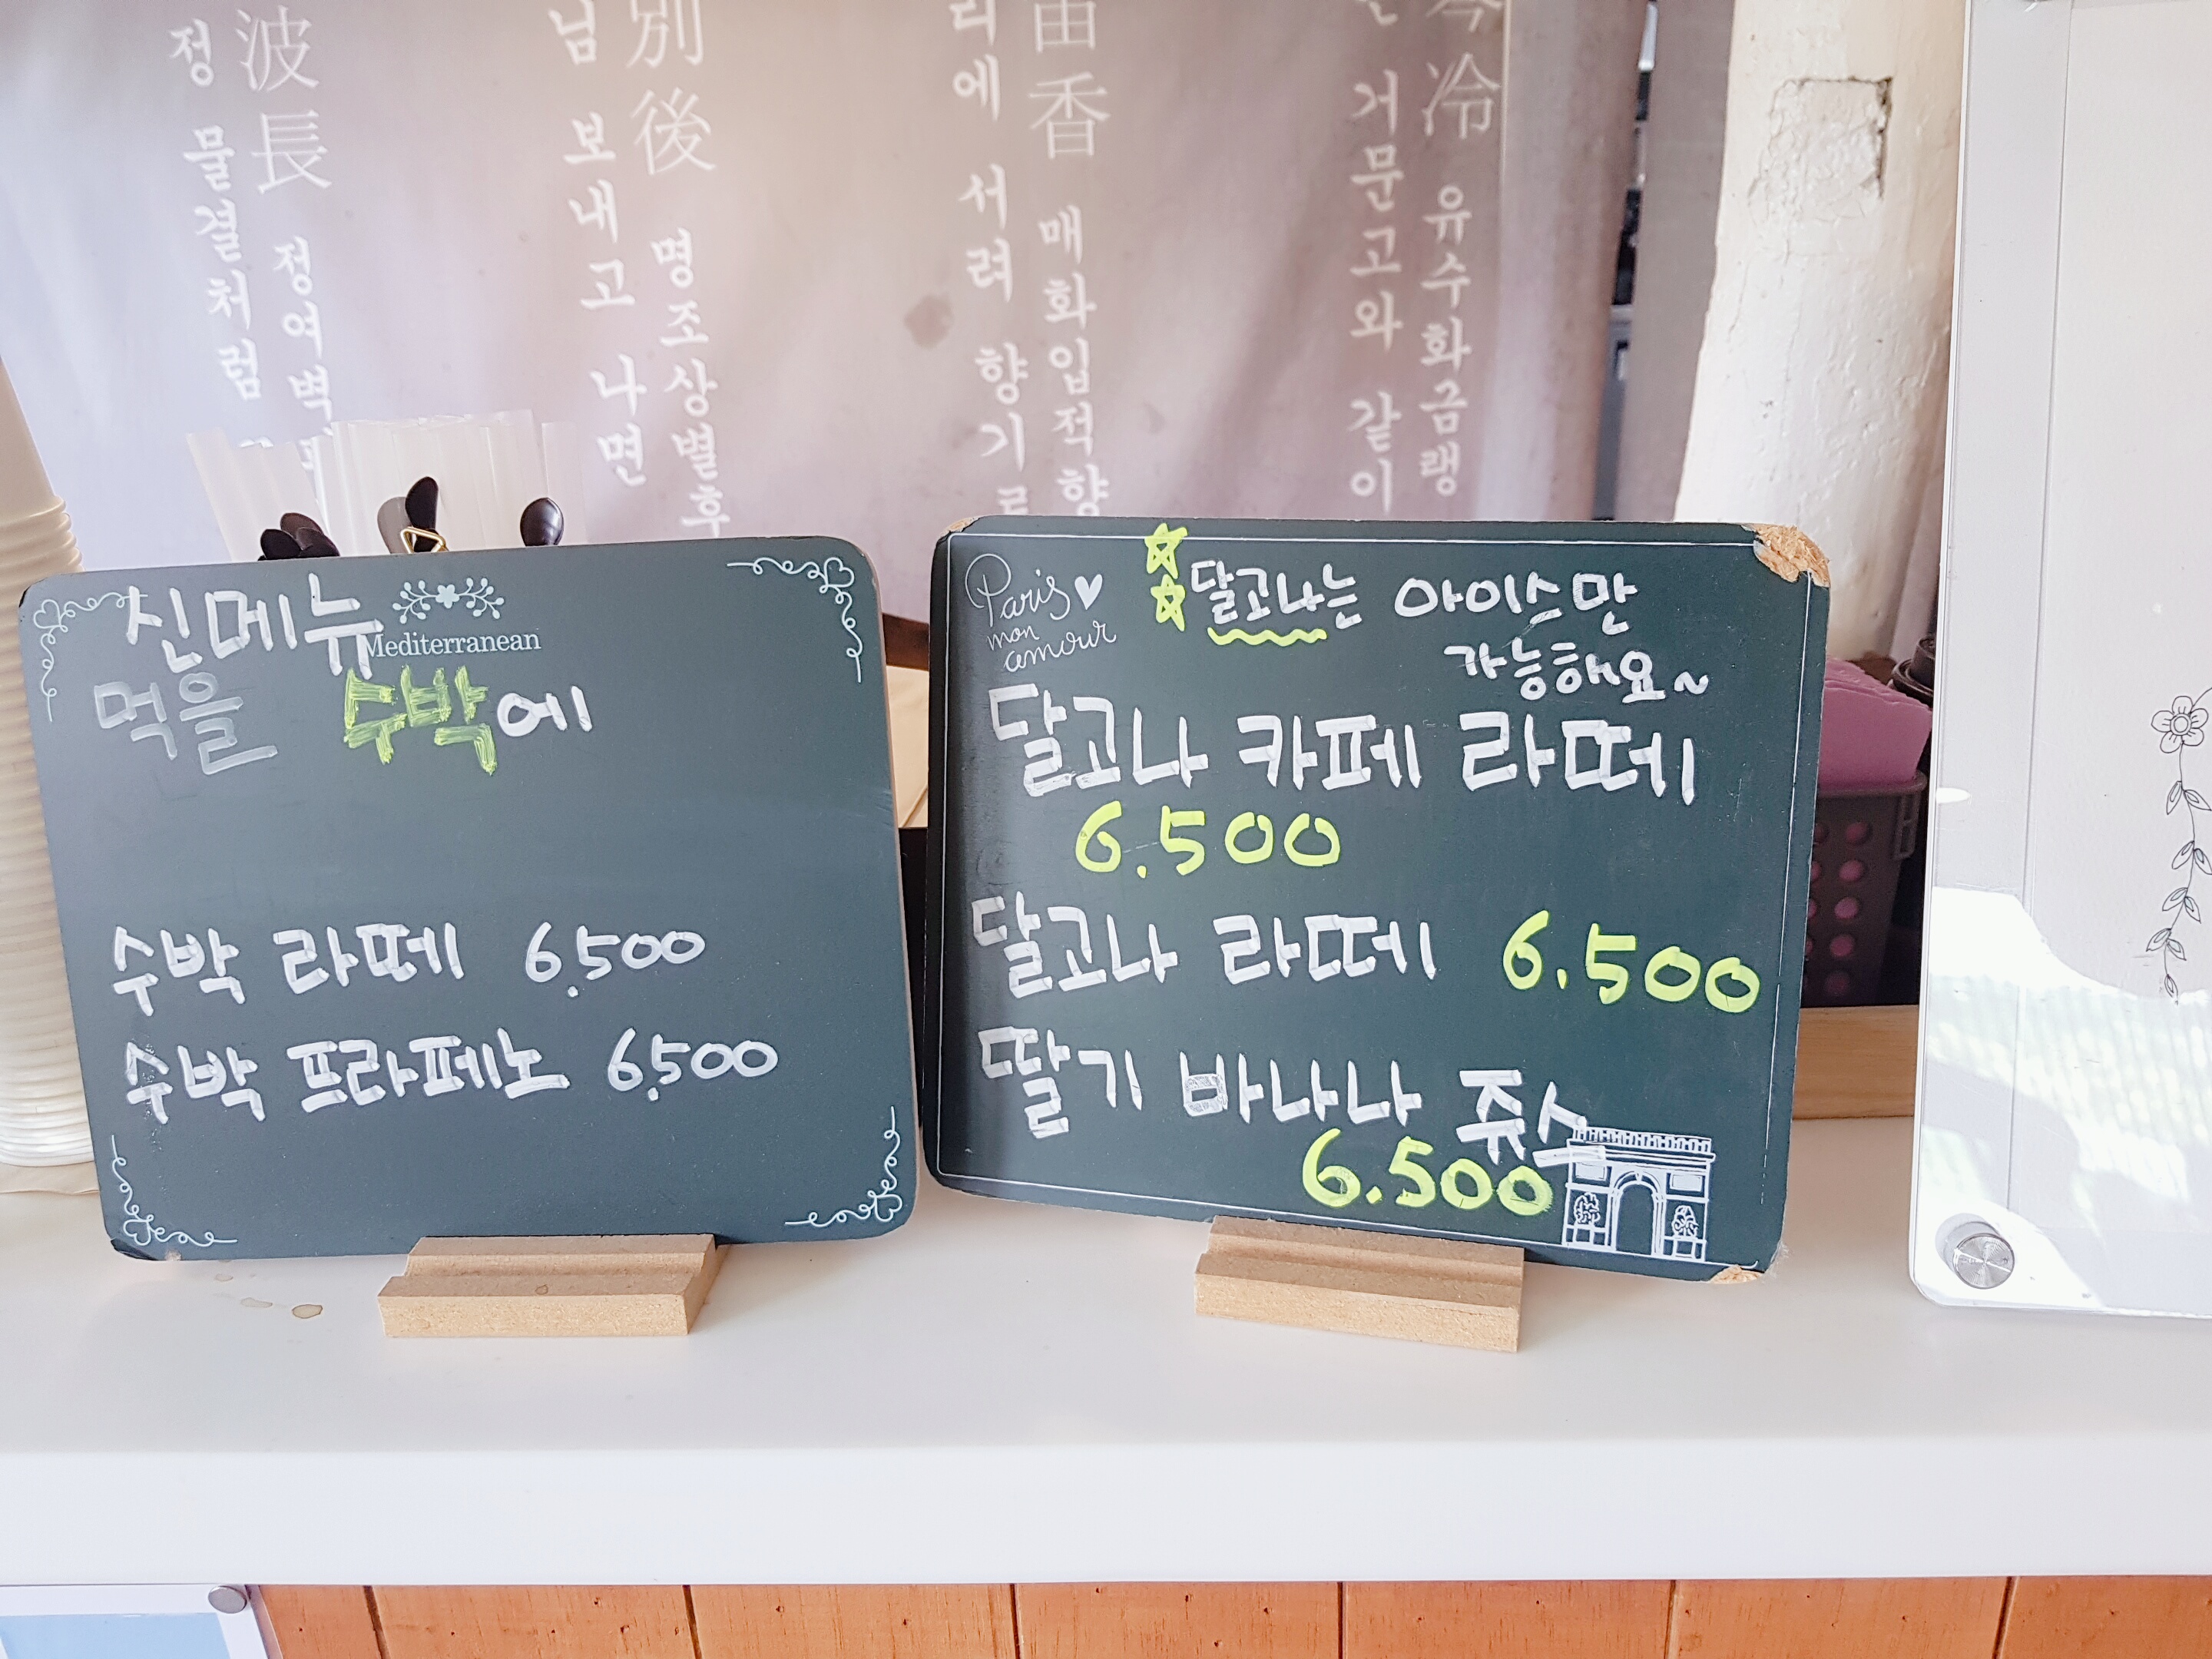 波長 정여벽
정 물결처럼
別後 명조상별후
님 보내고 나면
香 매화입적향
리에 서려 향기
冷 유수화금랭
거문고와 같이
신메뉴
Mediterranean
먹을 수박에
수박 라떼 6.500
수박 프라페노 6.500
Paris
mon
amour
달고나는 아이스만
가능해요~
달고나 카페 라떼
6.500
달고나 라떼 6.500
딸기 바나나 쥬스
6.500